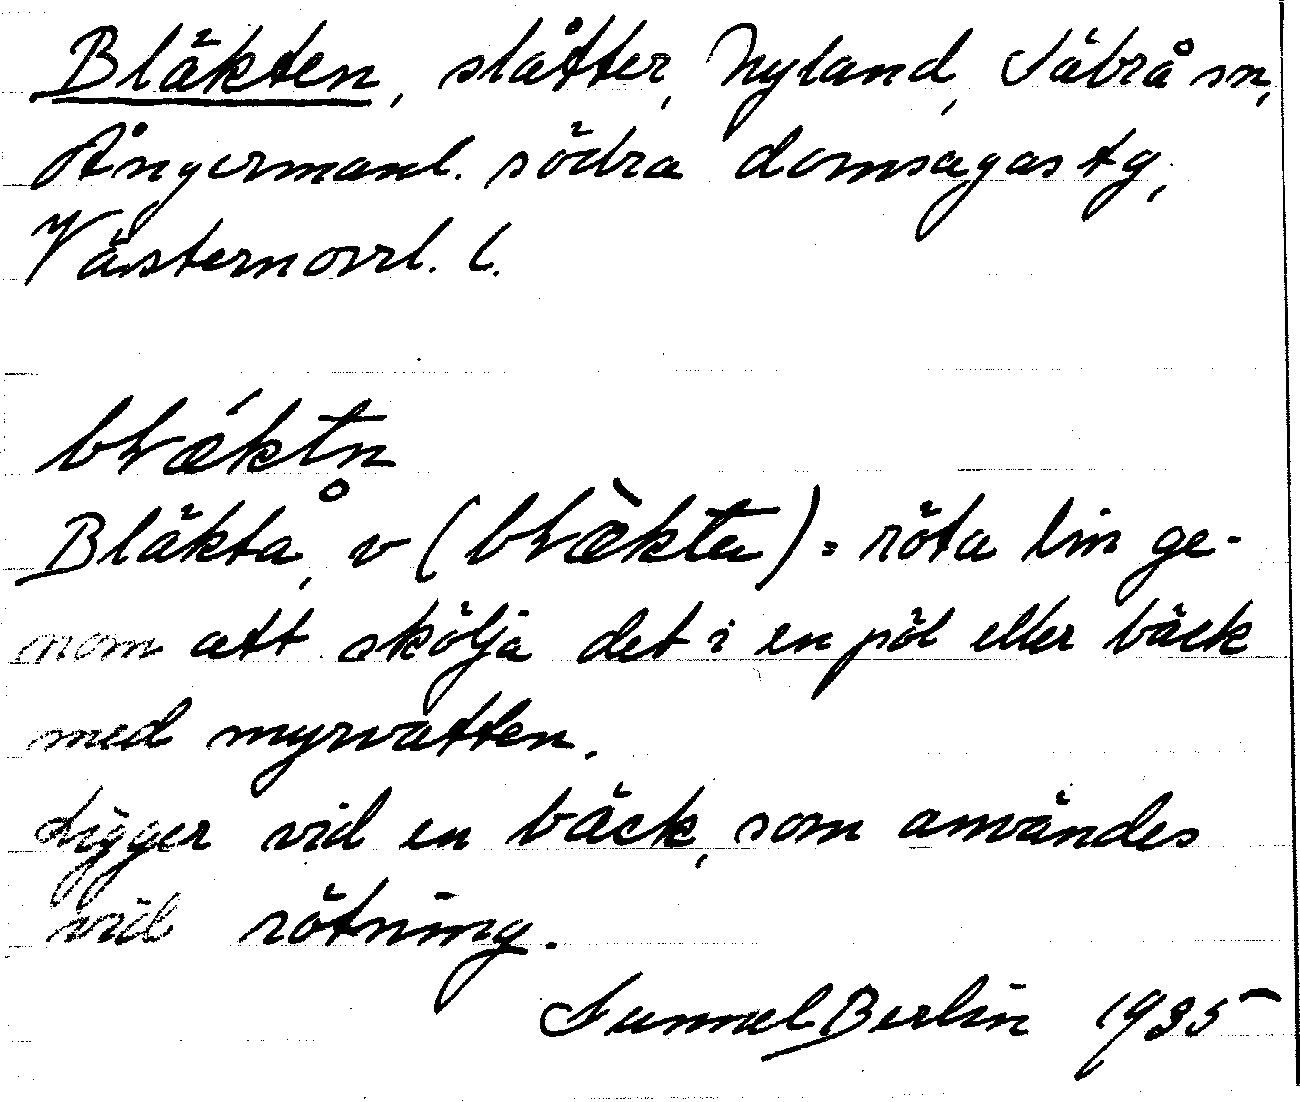 Bläkten, slåtter, Nyland, Säbrå sn,
Ångermanl. södra domsagas tg,
Västernorrl. l.
Bläkta, v ( ) = röta lin ge-
nom att skölja det i en pöl eller bäck
med myrvatten.
Ligger vid en bäck, som användes
vid rötning.
Gunnel Berlin 1935